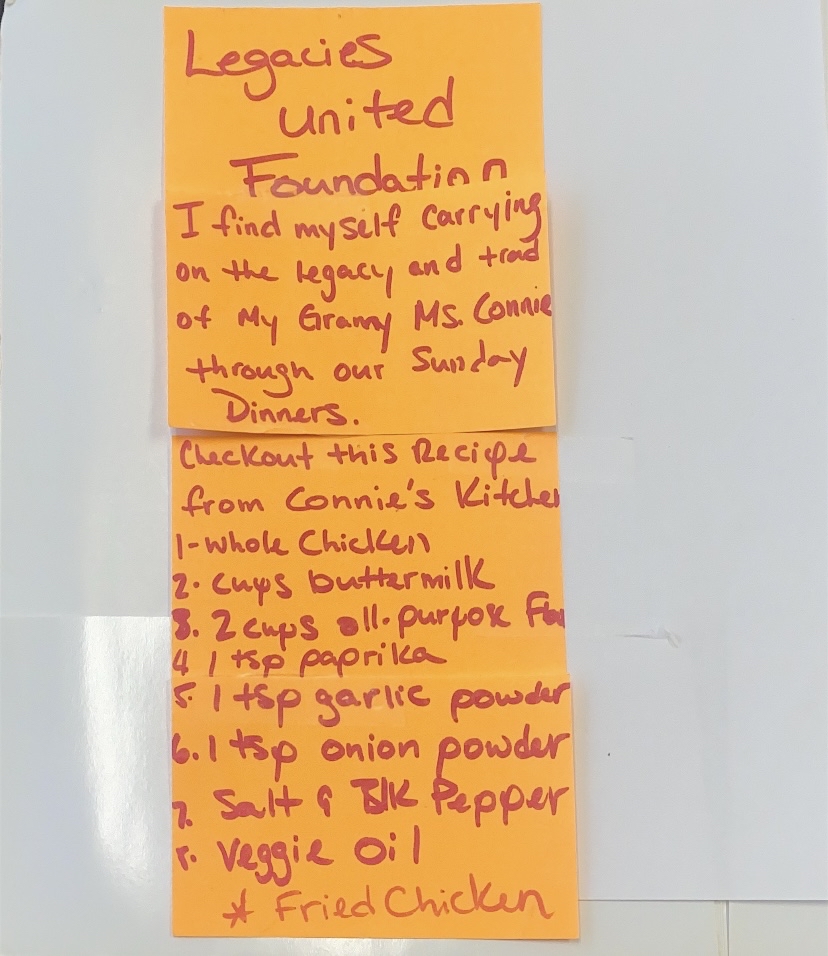 Legacies
United
Foundation
I find myself carrying
on the legacy and trad
of My Granny MS. Connie
through our Sunday
Dinners.
Checkout this Recipe
from Connie's Kitchen
1-whole Chicken
2. cups buttermilk
3. 2 cups all-purpose
4 1 tsp paprika
5. 1 tsp garlic powder
6. 1 tsp onion powder
7. Salt & Blk Pepper
8. Veggie Oil
* Fried Chicken